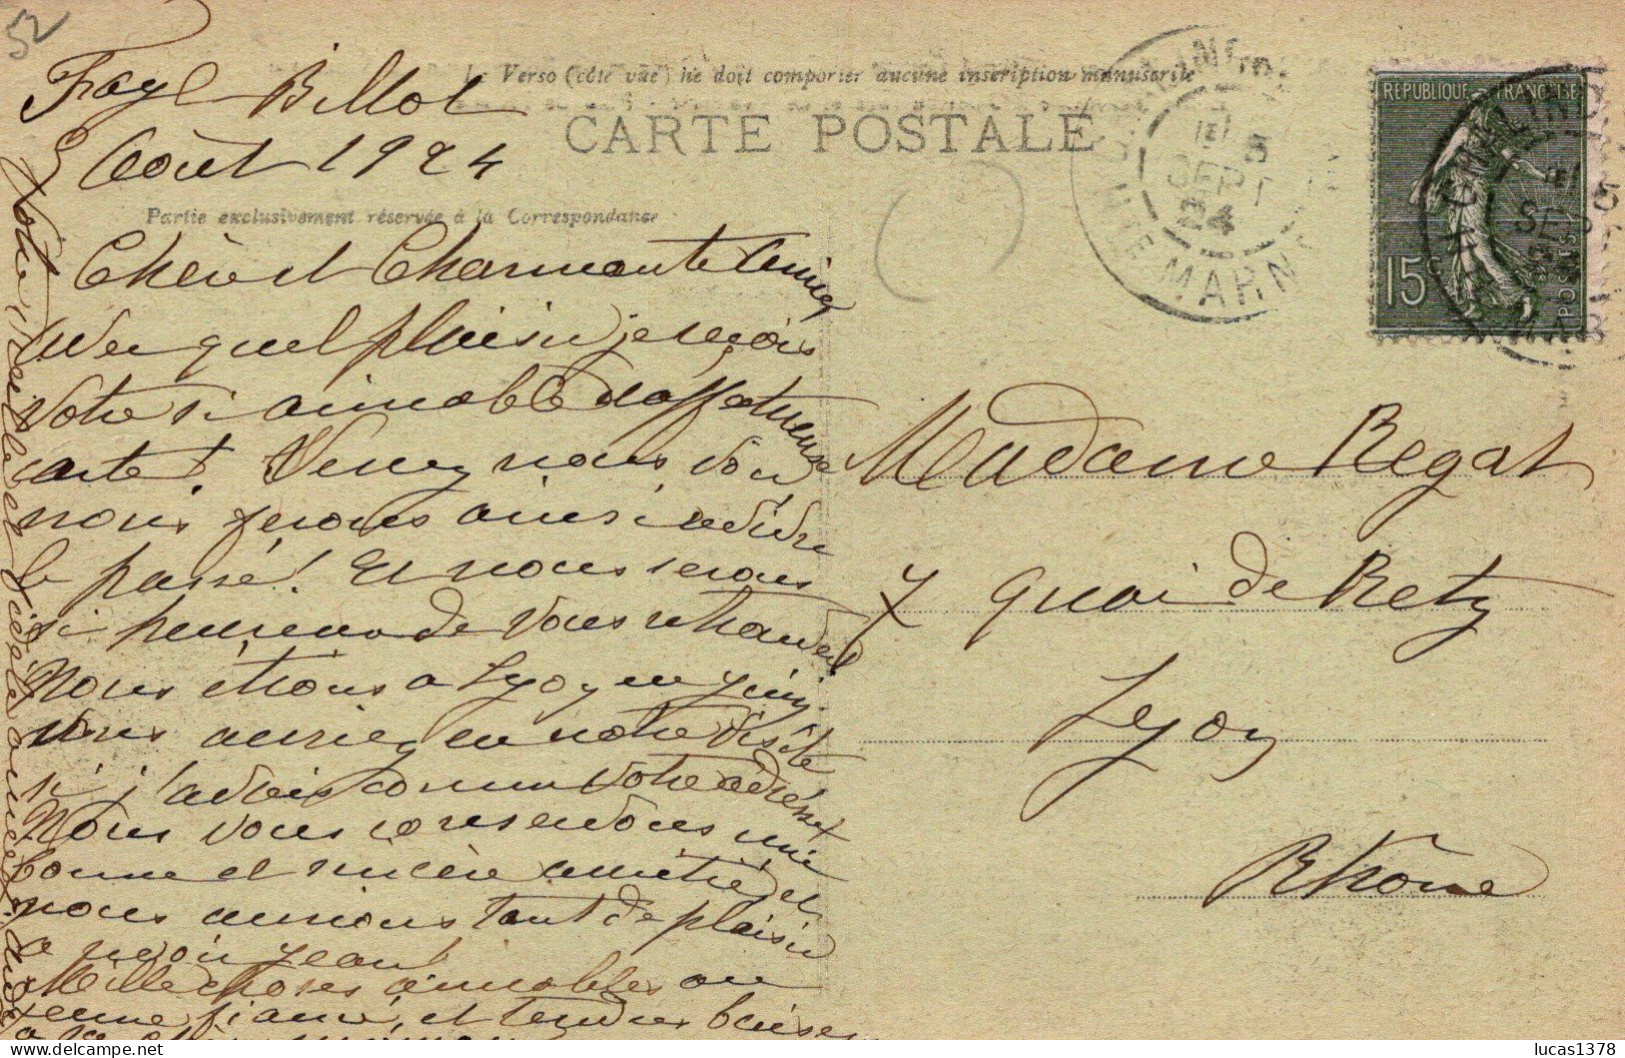 52
Fayl Billot
3 Août 1924
Le Verso (côté vue) ne doit comporter aucune inscription manuscrite
CARTE POSTALE
Partie exclusivement réservée à la Correspondance
Chère et Charmante Amie,
Avec quel plaisir je reçois
votre si aimable et affectueuse
carte! Venez nous voir
nous ferons ainsi revivre
le passé! Et nous serons
si heureux de vous
Nous étions a Lyon en Juin
vous auriez eu notre visite
si j'avais connu votre adresse
Nous vous conservons une
bonne et sincère amitié et
nous aurions tant de plaisir
a revoir Jean!
Mille choses aimables au
jeune fiancé, et tendres baisers
a maman
Votre vieille et fidèle amie
REPUBLIQUE FRANÇAISE
15c
POSTES
5
SEPT
24
HTE MARNE
Madame Regat
7 quai de Retz
Lyon
Rhône
lucas1378